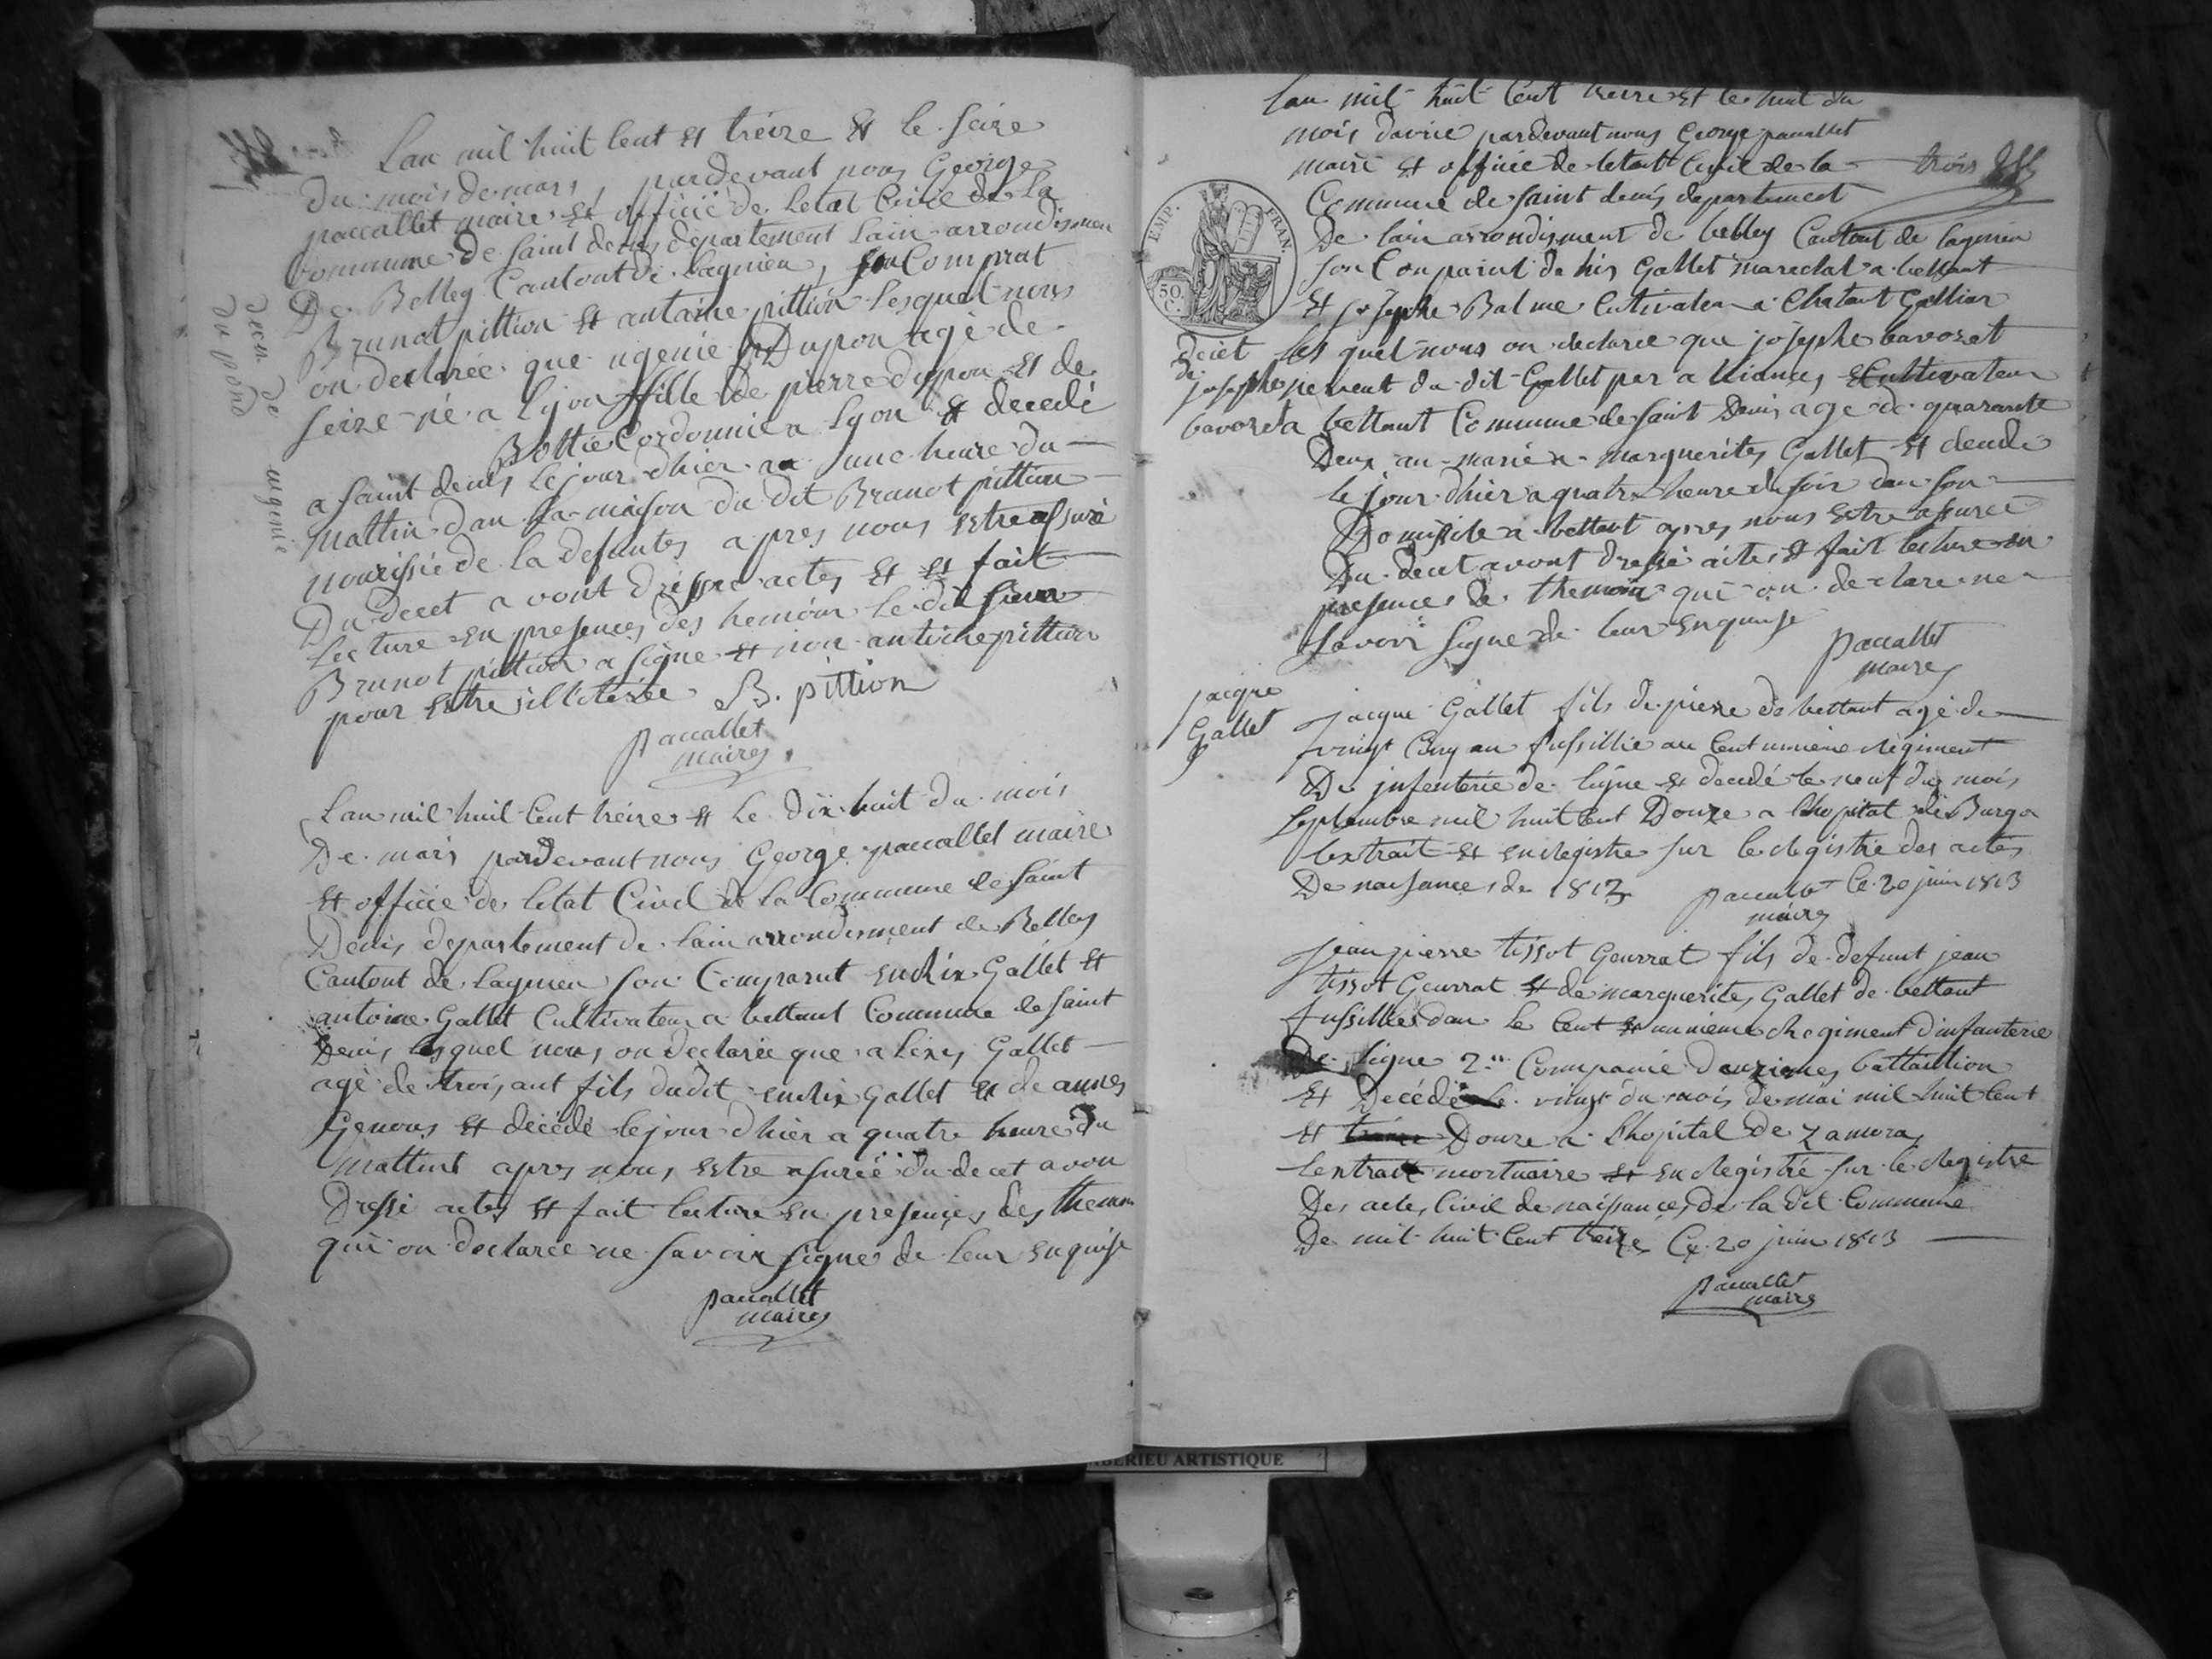 Lan mil huit Cent et treize et le seize
du mois de mars, pardevant nous George
paccallet maire et officié de Letat Civil de La
Commune de Saint denis département Lain arrondisment
De Belley Cantont de Lagnieu, son Comprat
Brunot pittion et antoine pittion Lesquel nous
on declarée que ugenie Dupon agé de
seize né a Lyon fille de pierre dupon et de
Bottie Cordonnié a Lyon et decedé
a saint denis Le jour dhier a une heure du
mattin dan La maison du dit Brunot pittion
nourissié de La defuntes apres nous estre assuré
Du decet avont dressé actes et et fait
Lecture en presences des hemoin Le dit sieur
Brunot pittion a signe et non antoine pittion
pour estre illiterée B. pittion
paccallet
maires
decet de ugenie
du pond
Lan mil huit Cent treize et Le dix huit du mois
De mars pardevant nous George paccallet maire
et officie de Letat Civil de La Commune de Saint
Denis departement de Lain arrondisment de Belley
Cantont de Lagnieu son Comparut Gallet et
antoine Gallet Cultivateur a bettant Commune de saint
Denis Lesquel nous on declarée que alexis Gallet
agé de trois ant fils dudit Gallet et de annes
Genous et décédé Le jour dhier a quatre heure du
mattint apres nous estre asurée du decet avon
Dressé actes et fait Lecture en presences des themoin
qui on declaree ne savoir signes de Leur enquise
paccallet
maires
Lan mil huit Cent treize et le huit du
mois davril pardevant nous George paccallet
maire et officié de Letat Civil de La
trois
Commune de saint denis departement
De Lain arrondisment de belley Cantont de Lagnieu
son Conparut denis Gallet marechal a bettant
EMP. FRAN.
50. C.
et josephe Balme Cultivateur a Chatant Gallian
Les quel nous on declaree que josephe bavozet
decet
de
josephe
bavozet
du dit Gallet par alliances et Cultivateur
a bettant Commune de saint Denis age de quarante
Deux an marié a marguerites Gallet et decede
le jour dhier a quatre heure du soir dan son
Domicile a bettant apres nous estre assuree
Du decet avont dressé actes et fait Lecture en
presences de themoin qui on declare ne
savoir signe de Leur enquise
paccallet
maires
jacque
Gallet
jacque Gallet fils de pierre de bettant agé de
vingt Cinq an fussillié au Cent unieme Régiment
De jnfenterie de Ligne et decedé le neuf du mois
septembre mil huit Cent Douze a Lhopital de Burgo
Lextrait et enregistre sur le Registre des actes
De naisances de 1813 Le 20 juin 1813
maires
jean pierre tissot Geurrat fils de defunt jean
tissot Geurrat et de marguerites Gallet de bettant
fussillié dan Le Cent et unieme Regiment dinfanterie
De Ligne 2.me Companie deuziemes battaillion
et Décédé le vingt du mois de mai mil huit Cent
et treize Douze a Lhopital de zamora
Lextrait mortuaire et en Registré sur Le Registre
Des actes Civil de naissances de La dit Commune
De mil huit Cent treize Ce 20 juin 1813
paccallet
maires
BERIEU ARTISTIQUE